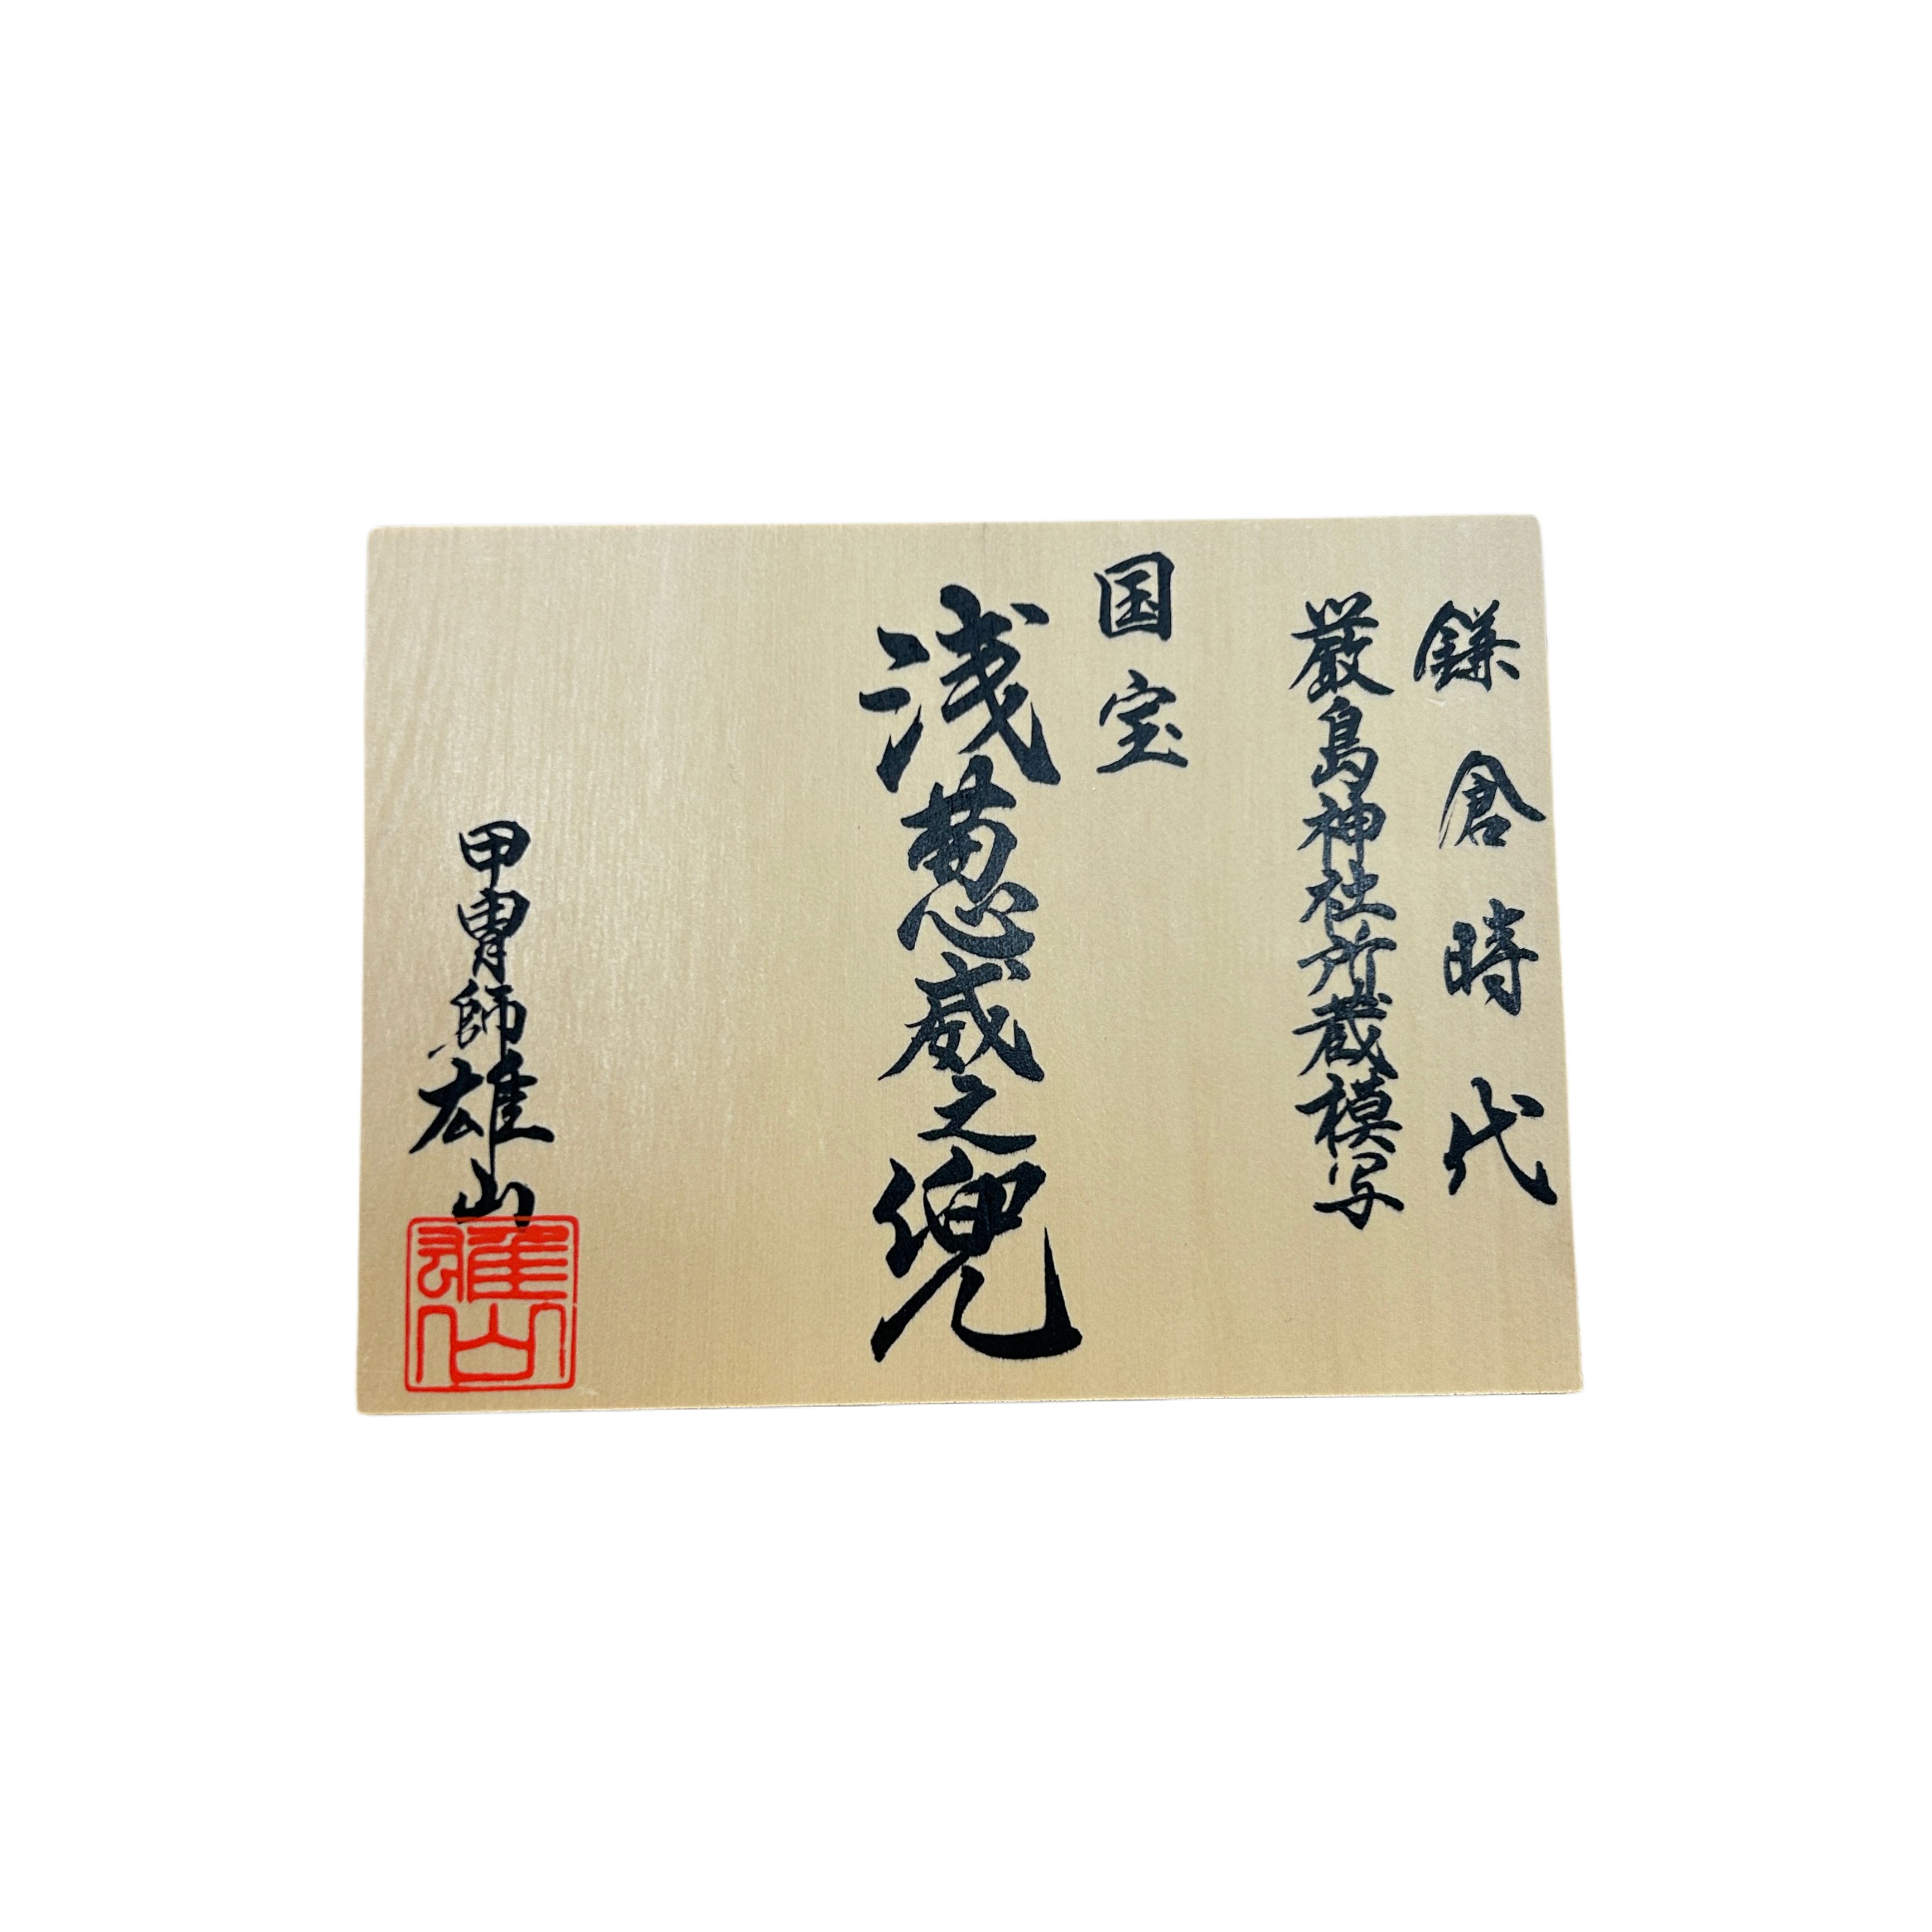 鎌倉時代
厳島神社所蔵模写
国宝
浅葱威之兜
甲冑師雄山
雄山